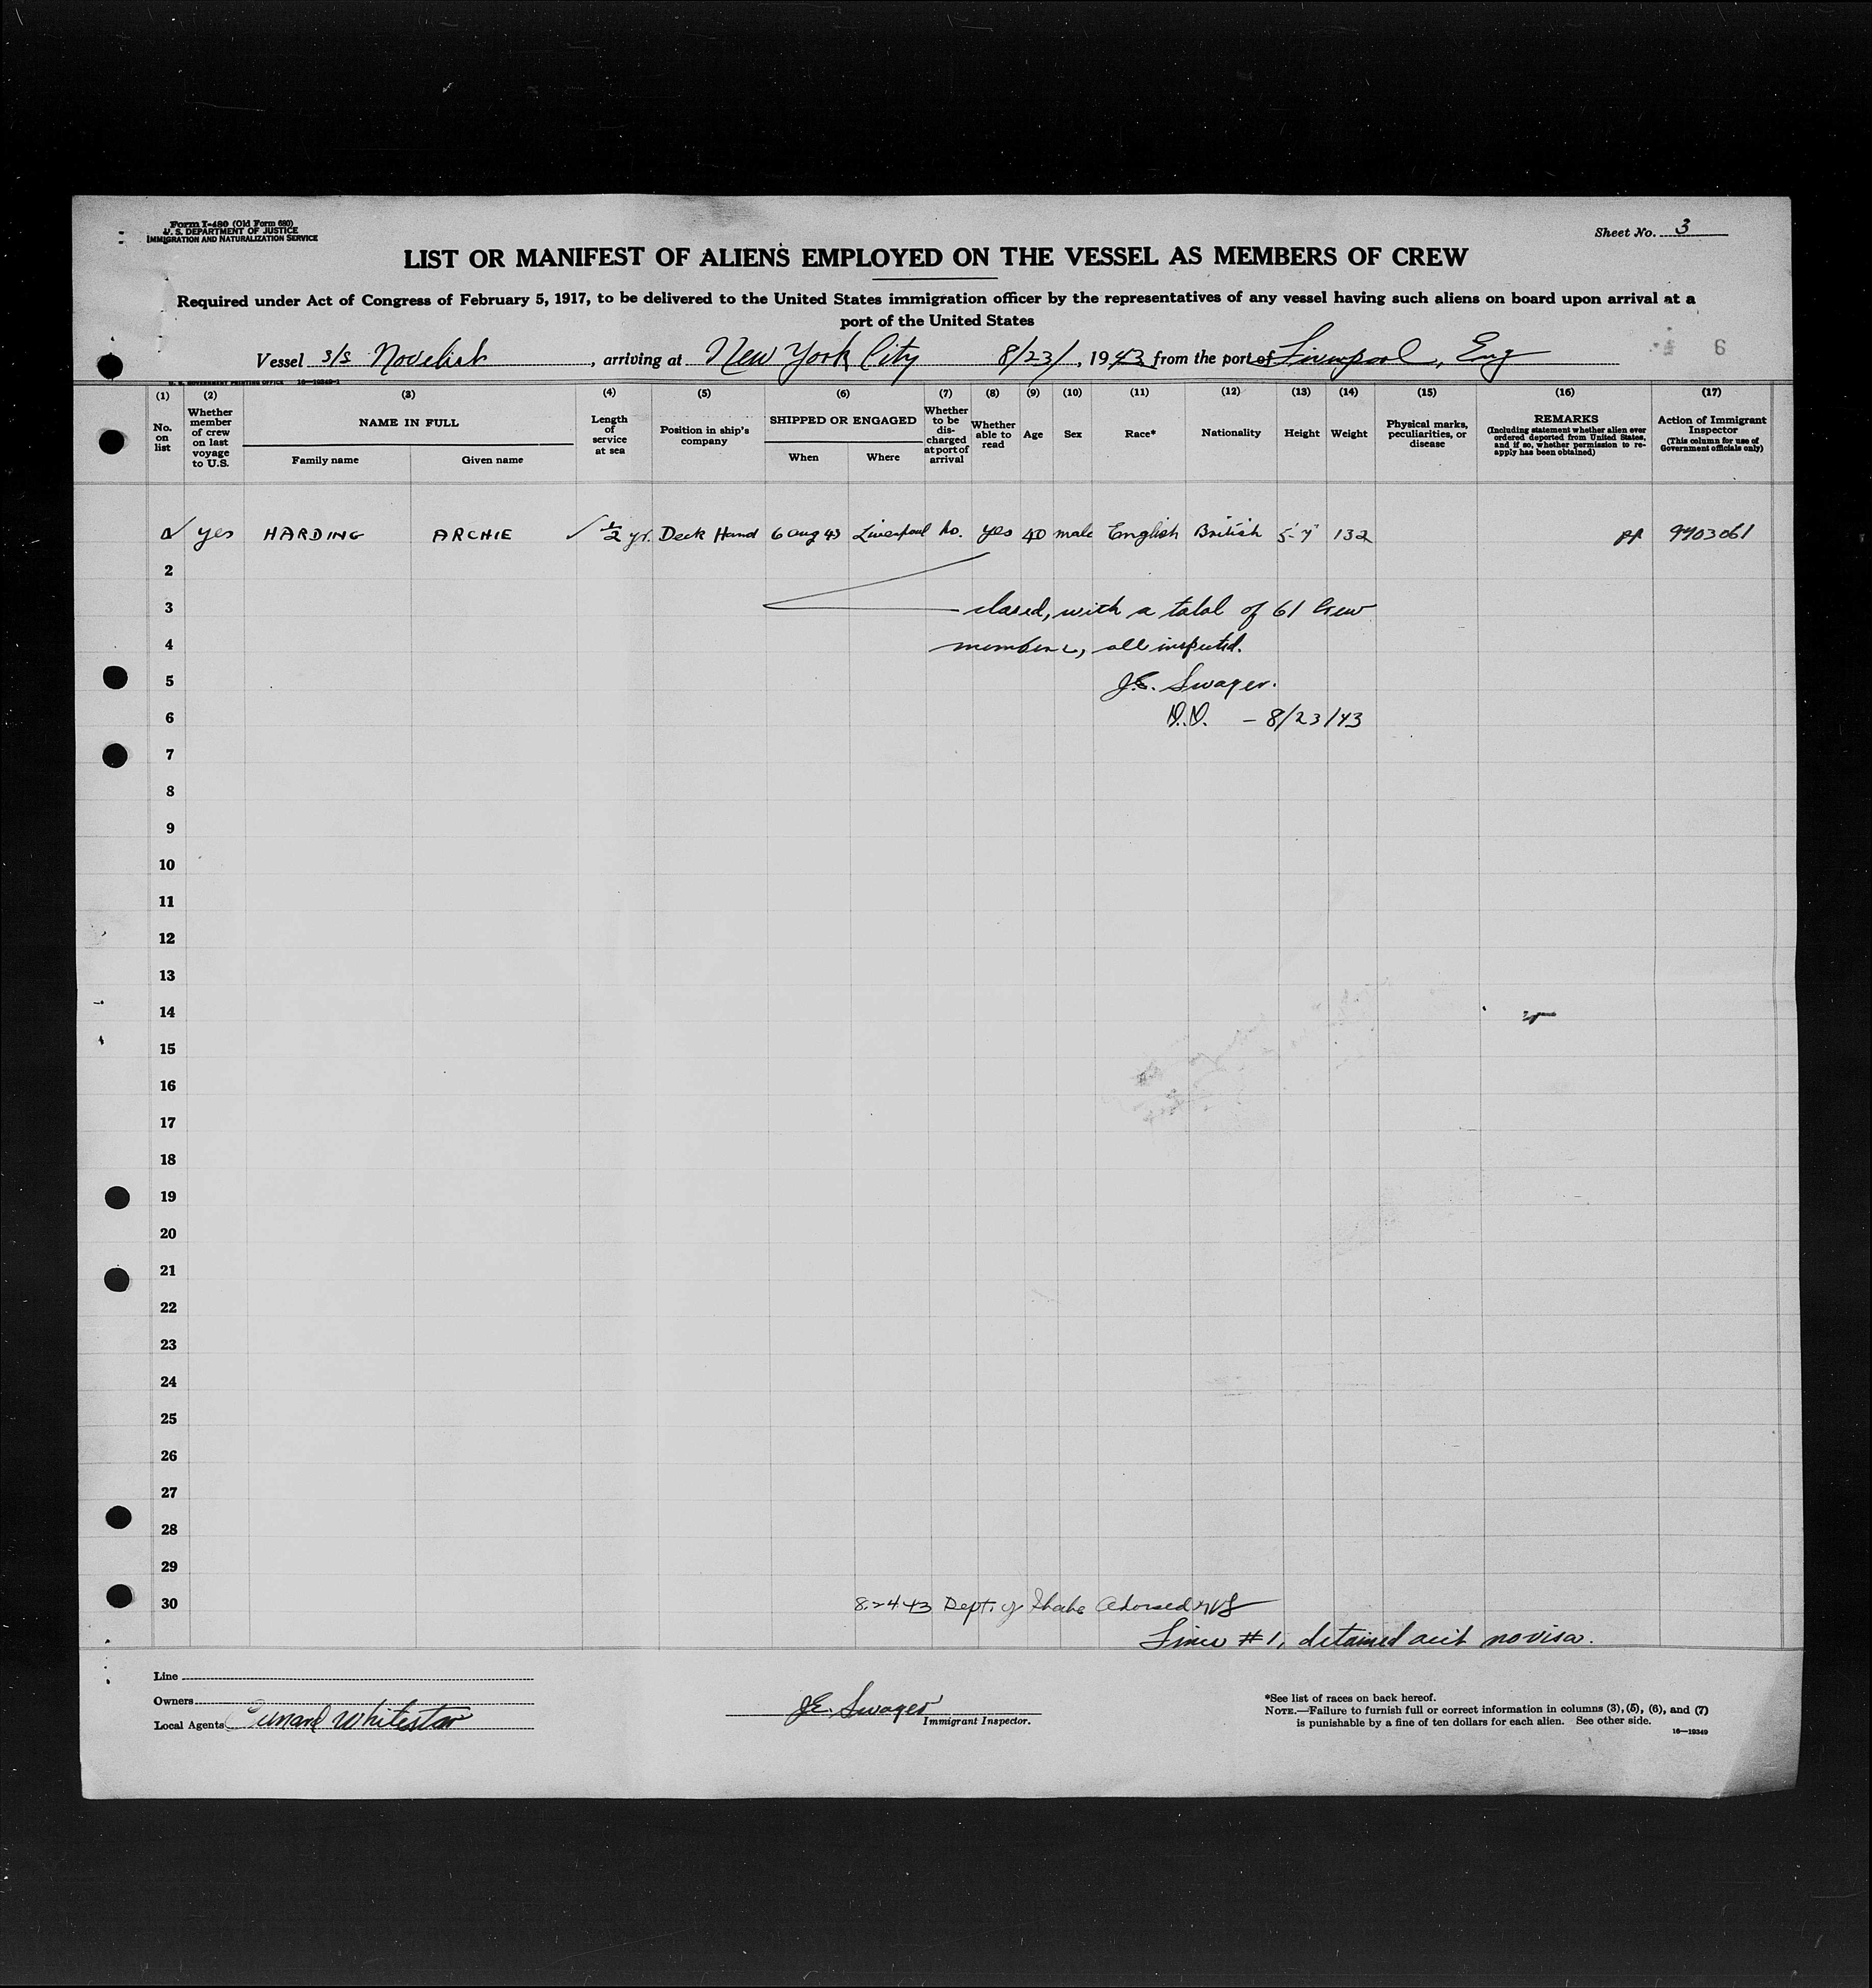 Form I-480 (Old Form 680)
U. S. DEPARTMENT OF JUSTICE
IMMIGRATION AND NATURALIZATION SERVICE
Sheet No. 3
LIST OR MANIFEST OF ALIENS EMPLOYED ON THE VESSEL AS MEMBERS OF CREW
Required under Act of Congress of February 5, 1917, to be delivered to the United States immigration officer by the representatives of any vessel having such aliens on board upon arrival at a
port of the United States
Vessel S/S Novelist, arriving at New York City 8/23/, 1943 from the port of Liverpool, Eng
6
U. S. GOVERNMENT PRINTING OFFICE 16—19349-1
(1) (2) (3) (4) (5) (6) (7) (8) (9) (10) (11) (12) (13) (14) (15) (16) (17)
No. on list
Whether member of crew on last voyage to U.S.
NAME IN FULL
Family name Given name
Length of service at sea
Position in ship's company
SHIPPED OR ENGAGED
When Where
Whether to be dis-charged at port of arrival
Whether able to read
Age
Sex
Race*
Nationality
Height
Weight
Physical marks, peculiarities, or disease
REMARKS
(Including statement whether alien ever ordered deported from United States, and if so, whether permission to re-apply has been obtained)
Action of Immigrant Inspector
(This column for use of Government officials only)
yes HARDING ARCHIE ✓ 1/2 yr. Deck Hand 6 Aug 43 Liverpool No. yes 40 male English British 5'-7" 132 PP 9903061
2
3 closed, with a total of 61 Crew
4 members, all inspected.
5 J.E. Swager.
6 - 8/23/43
7
8
9
10
11
12
13
14
15
16
17
18
19
20
21
22
23
24
25
26
27
28
29
30 8.24.43 Dept. of State
Line #1, detained acct no visa.
Line
Owners
Local Agents Cunard Whitestar
J.E. Swager
Immigrant Inspector.
*See list of races on back hereof.
NOTE.—Failure to furnish full or correct information in columns (3), (5), (6), and (7)
is punishable by a fine of ten dollars for each alien. See other side.
16—19349